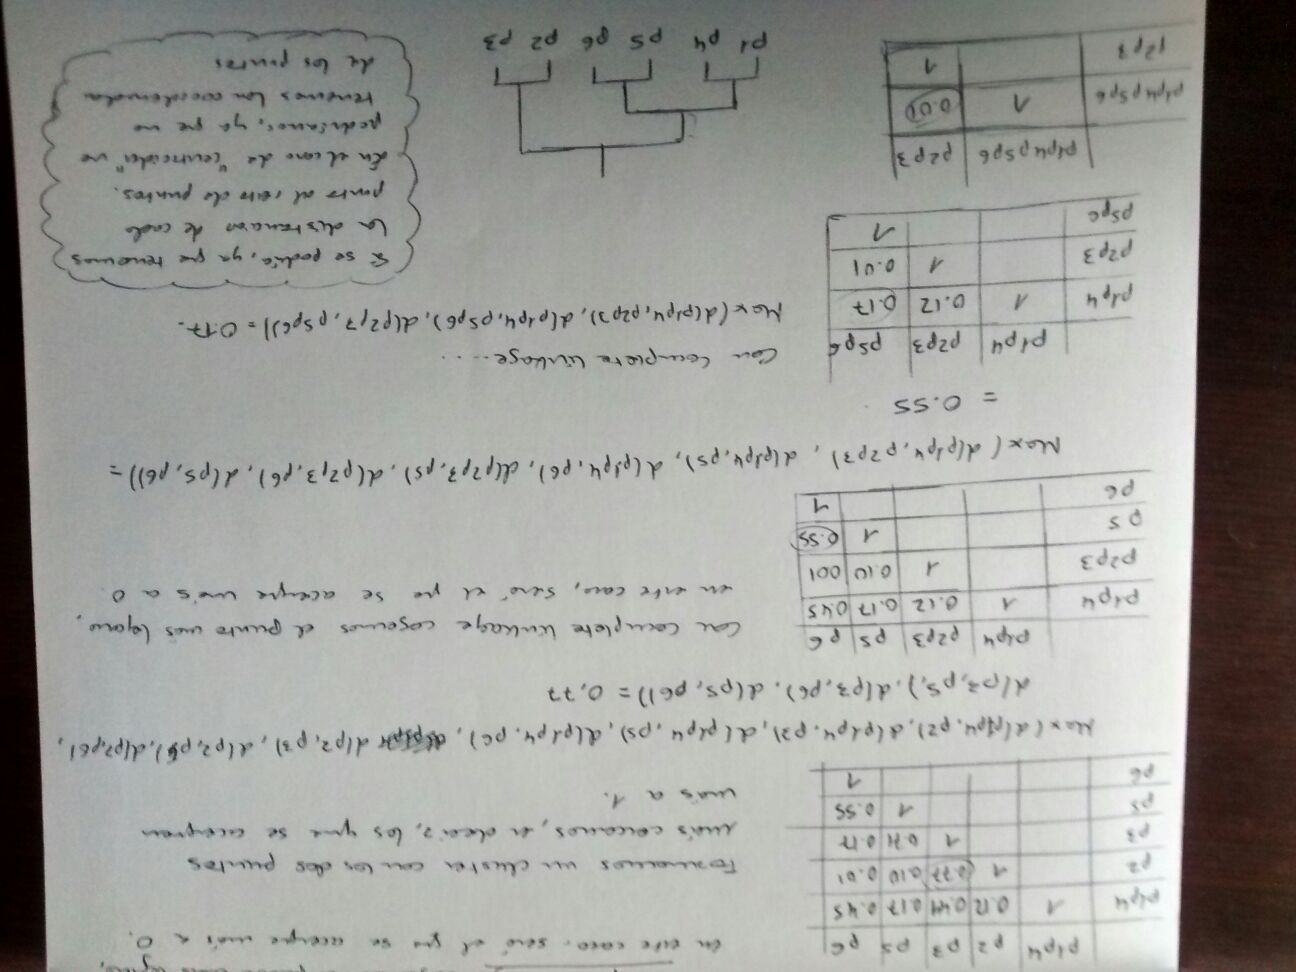 en este caso, será el que se acerque más a 0.
p1p4 p2 p3 p5 p6
p1p4 1 0.12 0.41 0.17 0.45
p2 1 0.77 0.10 0.01
p3 1 0.71 0.17
p5 1 0.55
p6 1
Formamos un cluster con los dos puntos
más cercanos, es decir, los que se acerquen
más a 1.
Max(d(p1p4, p2), d(p1p4, p3), d(p1p4, p5), d(p1p4, p6), d(p2, p3), d(p2, p5), d(p2, p6),
d(p3, p5,), d(p3, p6), d(p5, p6)) = 0,77
p1p4 p2p3 p5 p6
p1p4 1 0.12 0.17 0.45
p2p3 1 0.10 001
p5 1 0.55
p6 1
Con complete linkage cogemos el punto más lejano,
en este caso, será el que se acerque más a 0.
Max(d(p1p4, p2p3), d(p1p4, p5), d(p1p4, p6), d(p2p3, p5), d(p2p3, p6), d(p5, p6)) =
= 0.55
p1p4 p2p3 p5p6
p1p4 1 0.12 0.17
p2p3 1 0.01
p5p6 1
Con complete linkage....
Max(d(p1p4, p2p3), d(p1p4, p5p6), d(p2p3, p5p6)) = 0.17.
p1p4p5p6 p2p3
p1p4p5p6 1 0.01
p2p3 1
p1 p4 p5 p6 p2 p3
Si se podría, ya que tenemos
la distancia de cada
punto al resto de puntos.
En el caso de "centroides" no
podríamos, ya que no
tenemos las coordenadas
de los puntos